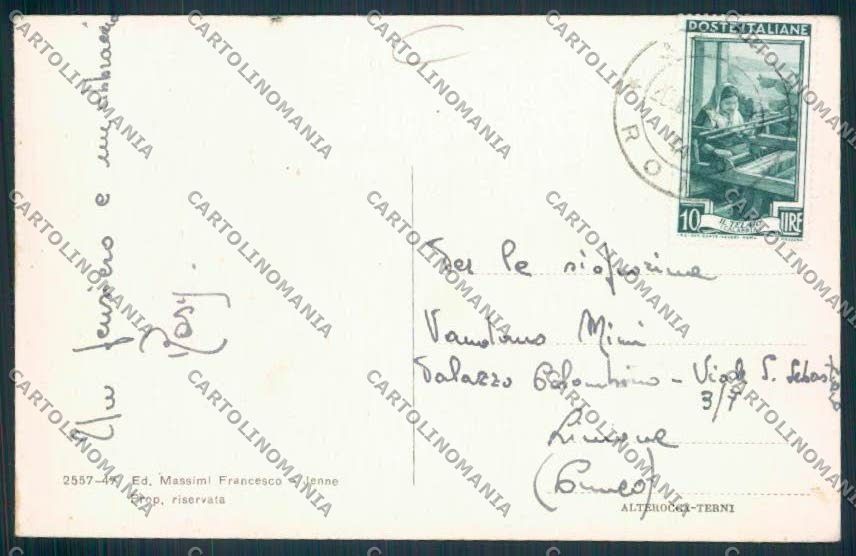 Un pensiero e un abbraccio
POSTE ITALIANE
ROMA
10 LIRE
IL TELAIO
Per le signorina
Mimi
Palazzo Colombino - Viale S. Sebastiano
3/7
Limone
(Cuneo)
2557-49 Ed. Massimi Francesco - Jenne
Prop. riservata
ALTEROCCA-TERNI
CARTOLINOMANIA